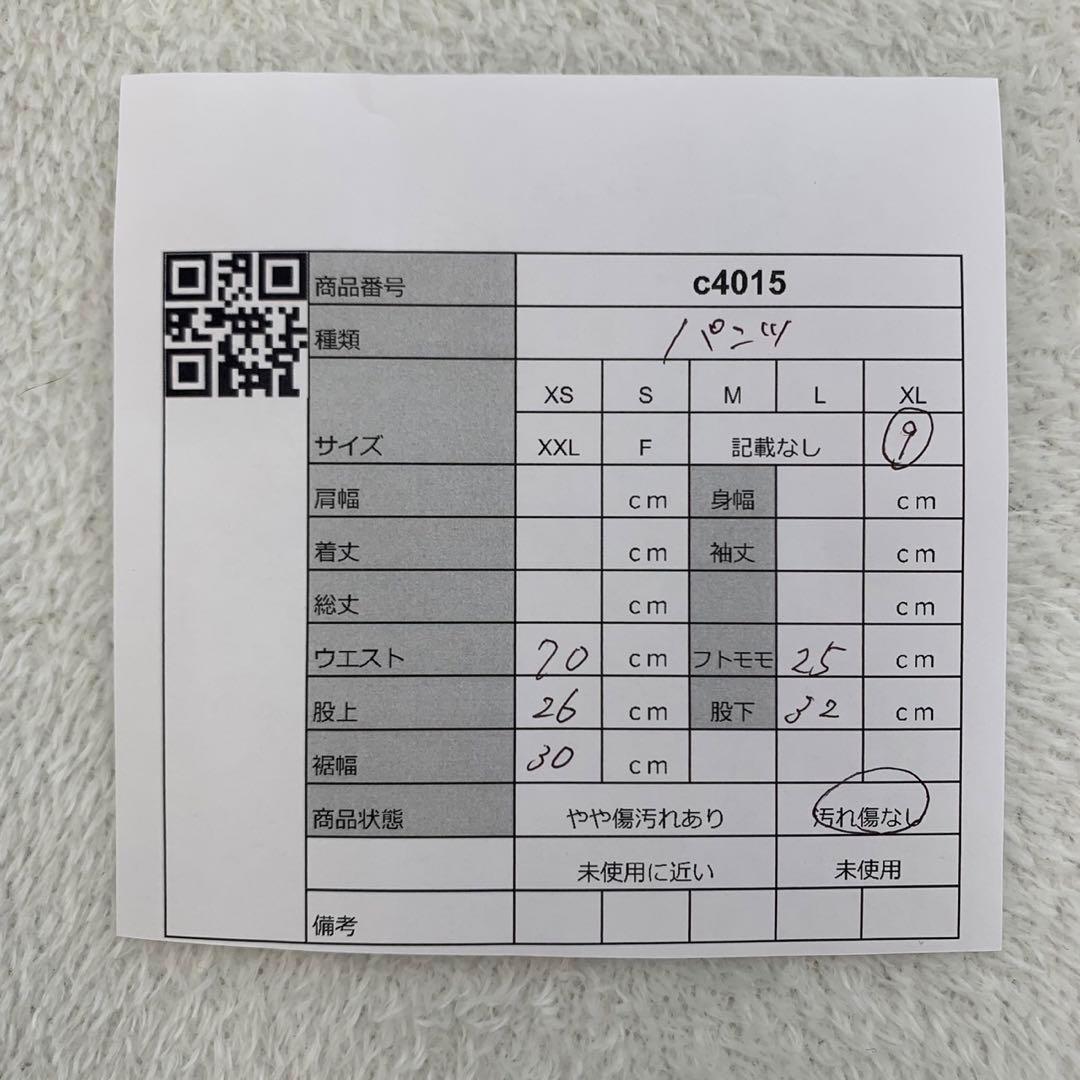 商品番号 c4015
種類 パンツ
XS S M L XL
サイズ XXL F 記載なし 9
肩幅 cm 身幅 cm
着丈 cm 袖丈 cm
総丈 cm cm
ウエスト 70 cm フトモモ 25 cm
股上 26 cm 股下 32 cm
裾幅 30 cm
商品状態 やや傷汚れあり 汚れ傷なし
未使用に近い 未使用
備考